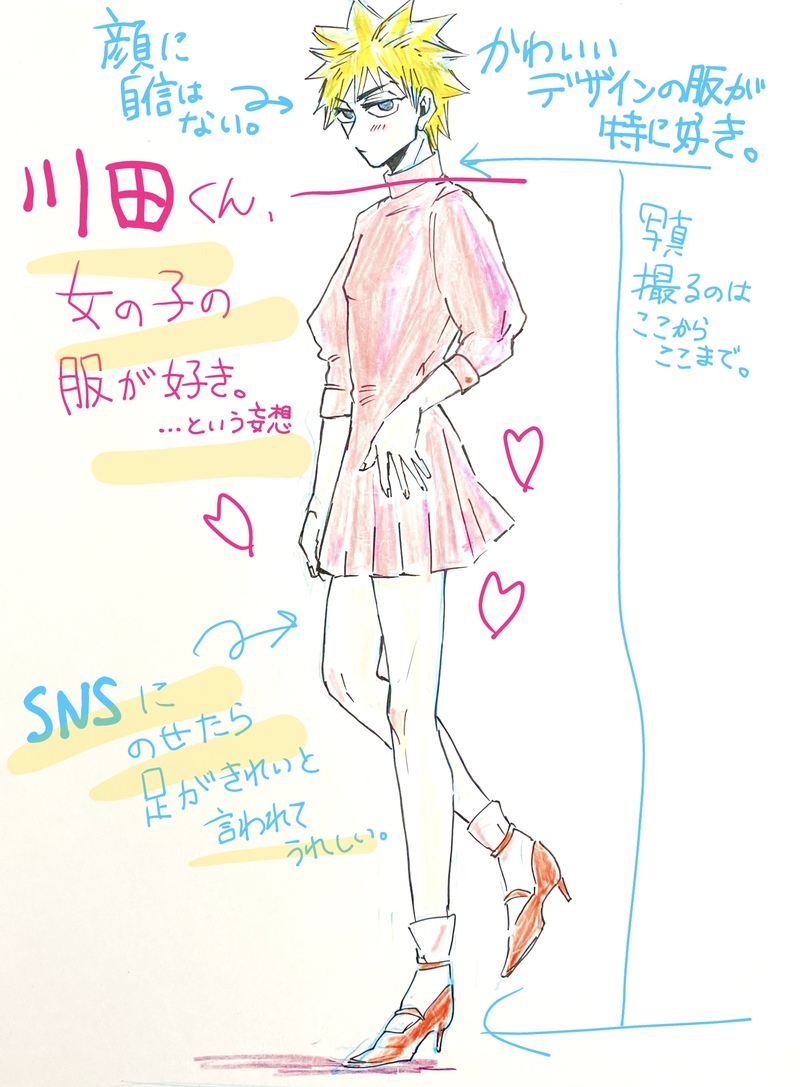 顔に
自信は
ない。
かわいい
デザインの服が
特に好き。
川田くん、
女の子の
服が好き。
…という妄想
写真
撮るのは
ここから
ここまで。
SNSに
のせたら
足がきれいと
言われて
うれしい。